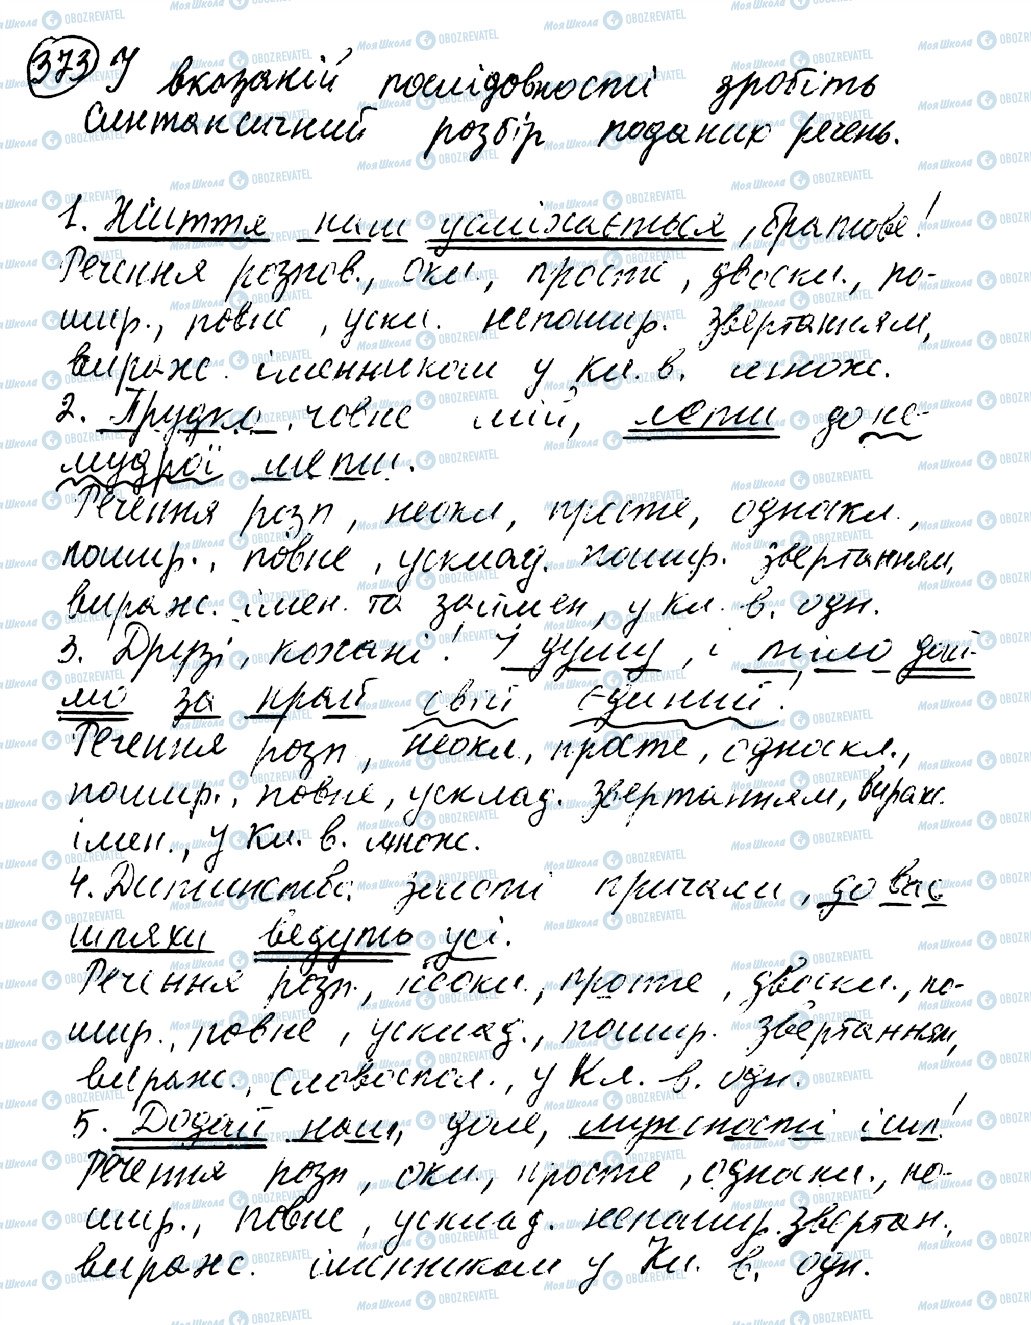 373 У вказаній послідовності зробіть
синтаксичний розбір поданих речень.
1. Життя нам усміхається, братове!
Речення розпов., окл., просте, двоскл., по-
шир., повне, ускл. непошир. звертанням,
вираж. іменником у Кл. в. множ.
2. Прудко, човне мій, лети до не-
мудрої мети.
Речення розп, неокл, просте, односкл.,
пошир., повне, усклад. пошир. звертанням,
вираж. імен. та займен, у Кл. в. одн.
3. Друзі, кохані! І думу, і тіло дай-
мо за край свій єдиний!
Речення розп, неокл, просте, односкл.,
пошир., повне, усклад. звертанням, вираж.
імен., у Кл. в. множ.
4. Дитинства золоті причали, до вас
шляхи ведуть усі.
Речення розп., неокл., просте, двоскл., по-
шир., повне, усклад., пошир. звертанням,
вираж., словоспол., у Кл. в. одн.
5. Додай нам, доле, мужності і сил!
Речення розп, окл., просте, односкл., по-
шир., повне, усклад. непошир. звертан.,
вираж. іменником у Кл. в. одн.